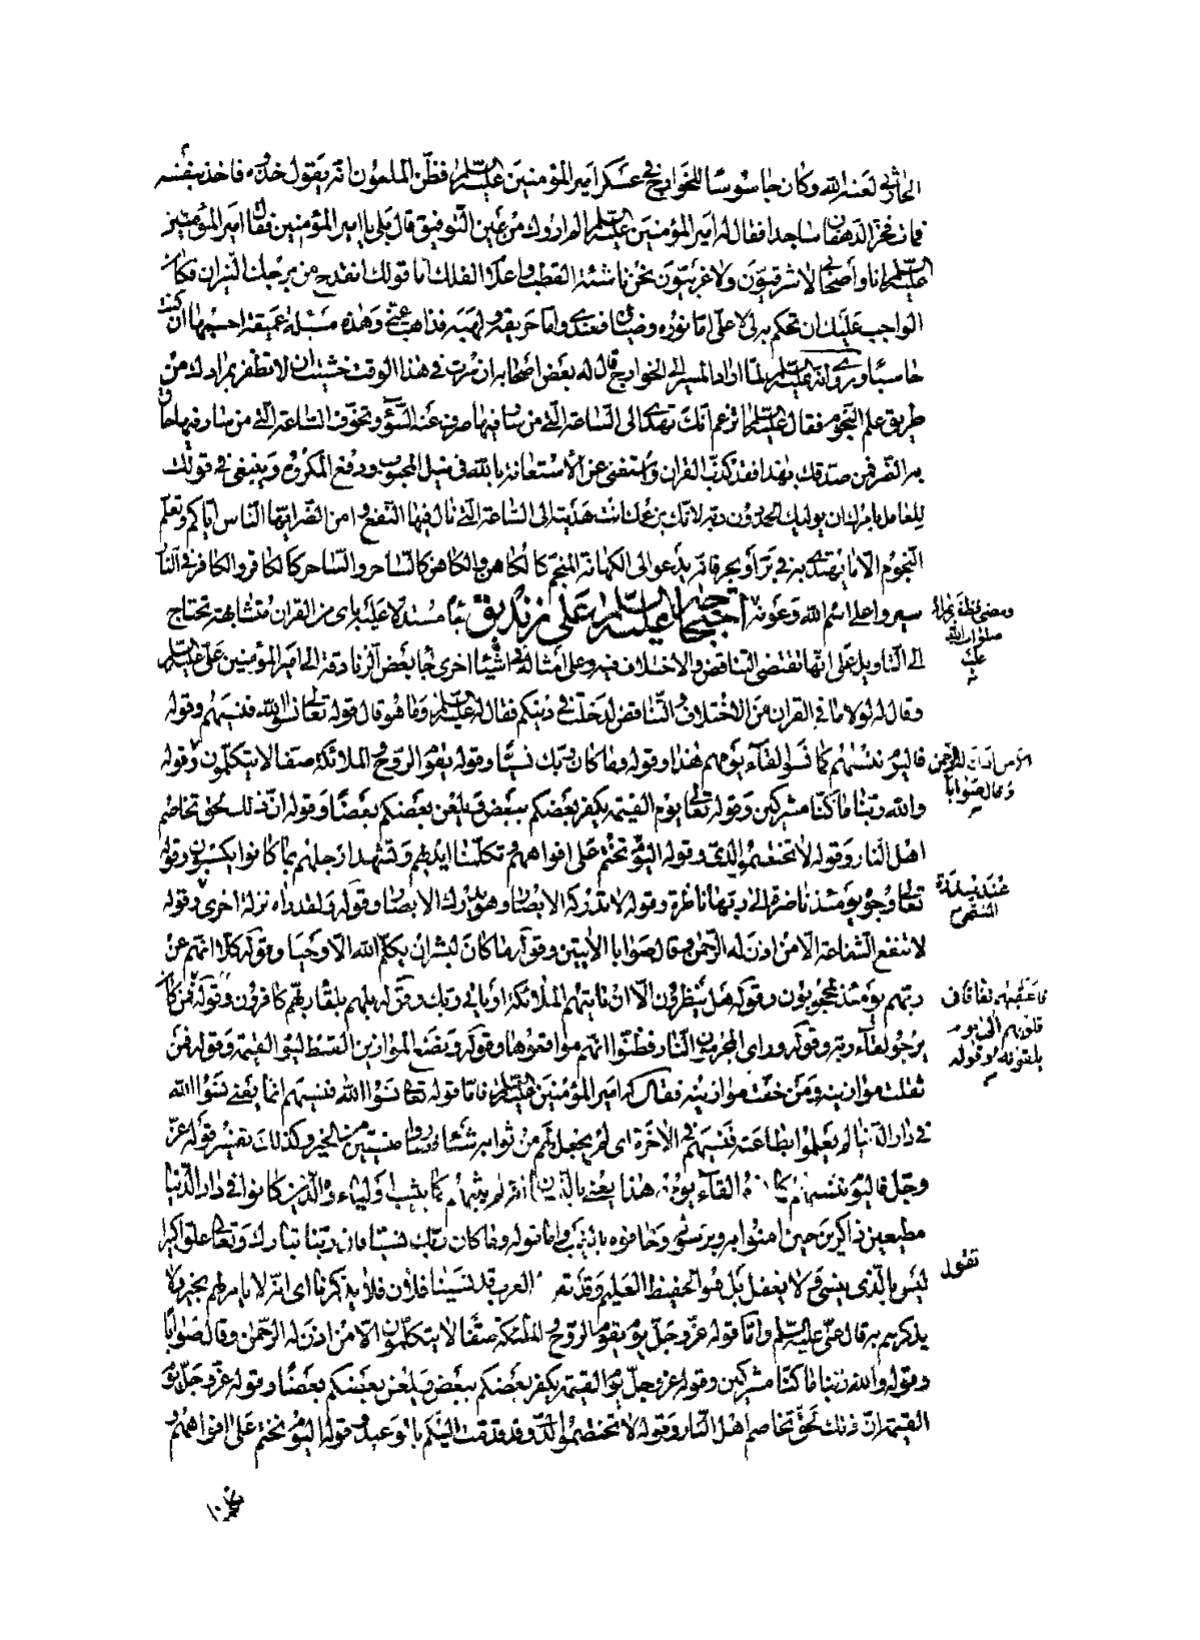 الحارثي لعنه الله وكان جاسوسا للخوارج في عسكر امير المؤمنين عليه السلم فظن الملعون انه يقول خذوه فاخذ بنفسه
فمات فخر الدهقان ساجدا فقال له امير المؤمنين عليه السلم الم اروك من عين التوفيق قال بلى يا امير المؤمنين فقال امير المؤمنين
عليه السلم انا واصحابي لا شرقيون ولا غربيون نحن ناشئة القطب واعلام الفلك اما قولك انقدح من برجك النيران فكان
الواجب عليك ان تحكم به لي لا علي اما نوره وضياؤه فعندي واما حريقه ولهبه فذاهب عني وهذه مسئلة عميقة احسبها ان كنت
حاسبا وروي انه عليه السلم لما اراد المسير الى الخوارج قال له بعض اصحابه ان سرت في هذا الوقت خشيت ان لا تظفر بمرادك من
طريق علم النجوم فقال عليه السلم اتزعم انك تهدي الى الساعة التي من سار فيها صرف عنه السوء وتخوف الساعة التي من سار فيها حاق
به الضر فمن صدقك بهذا فقد كذب القران واستغنى عن الاستعانة بالله في نيل المحبوب ودفع المكروه وينبغي في قولك
للعامل بامرك ان يوليك الحمد دون ربه لانك بزعمك انت هديته الى الساعة التي نال فيها النفع وامن الضر ايها الناس اياكم وتعلم
النجوم الا ما يهتدى به في بر او بحر فانه يدعو الى الكهانة المنجم كالكاهن والكاهن كالساحر والساحر كالكافر والكافر في النار
سيروا على اسم الله وعونه احتجاجه عليه السلم على زنديق جاء مستدلا عليه باي من القران متشابهة تحتاج
ومضى فظفر بمراده
صلوات الله
عليه
الى التاويل على انها تقتضي التناقض والاختلاف فيه وعلى امثاله في اشياء اخرى جاء بعض الزنادقة الى امير المؤمنين علي عليه السلم
وقال له لولا ما في القران من الاختلاف والتناقض لدخلت في دينكم فقال له عليه السلم وما هو قال قوله تعالى نسوا الله فنسيهم وقوله
فاليوم ننسيهم كما نسوا لقاء يومهم هذا وقوله وما كان ربك نسيا وقوله يوم يقوم الروح والملائكة صفا لا يتكلمون وقوله
الا من اذن له الرحمن
وقال صوابا
والله ربنا ما كنا مشركين وقوله تعالى يوم القيمة يكفر بعضكم ببعض ويلعن بعضكم بعضا وقوله ان ذلك لحق تخاصم
اهل النار وقوله لا تختصموا لدي وقوله اليوم نختم على افواههم وتكلمنا ايديهم وتشهد ارجلهم بما كانوا يكسبون وقوله
تعالى وجوه يومئذ ناضرة الى ربها ناظرة وقوله لا تدركه الابصار وهو يدرك الابصار وقوله ولقد راه نزلة اخرى وقوله
عند سدرة
المنتهى
لا تنفع الشفاعة الا من اذن له الرحمن وقال صوابا الايتين وقوله ما كان لبشر ان يكلمه الله الا وحيا وقوله كلا انهم عن
ربهم يومئذ لمحجوبون وقوله هل ينظرون الا ان تاتيهم الملائكة او ياتي ربك وقوله بل هم بلقاء ربهم كافرون وقوله فمن كان
فاعقبهم نفاقا في
قلوبهم الى يوم
يلقونه وقوله
يرجو لقاء ربه وقوله وراى المجرمون النار فظنوا انهم مواقعوها وقوله ونضع الموازين القسط ليوم القيمة وقوله فمن
ثقلت موازينه ومن خفت موازينه فقال له امير المؤمنين عليه السلم فاما قوله تعالى نسوا الله فنسيهم انما يعني نسوا الله
في دار الدنيا لم يعملوا بطاعته فنسيهم في الاخرة اي لم يجعل لهم من ثوابه شيئا فصاروا منسيين من الخير وكذلك تفسير قوله عز
وجل فاليوم ننسيهم كما نسوا لقاء يومهم هذا يعني بالنسيان انه لم يثبهم كما يثيب اولياءه الذين كانوا في دار الدنيا
مطيعين ذاكرين حين امنوا به وبرسوله وخافوه بالغيب واما قوله وما كان ربك نسيا فان ربنا تبارك وتعالى علوا كبيرا
ليس بالذي ينسى ولا يغفل بل هو الحفيظ العليم وقد تقول العرب قد نسينا فلان فلا يذكرنا اي انه لا يامر لهم بخير ولا
تقول
يذكرهم به قال علي عليه السلم واما قوله عز وجل يوم يقوم الروح والملئكة صفا لا يتكلمون الا من اذن له الرحمن وقال صوابا
وقوله والله ربنا ما كنا مشركين وقوله عز وجل يوم القيمة يكفر بعضكم ببعض ويلعن بعضكم بعضا وقوله عز وجل يوم
القيمة ان ذلك لحق تخاصم اهل النار وقوله لا تختصموا لدي وقد قدمت اليكم بالوعيد وقوله اليوم نختم على افواههم و